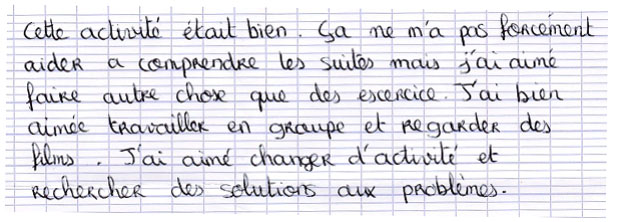 Cette activité était bien. Ça ne m'a pas forcément
aider a comprendre les suites mais j'ai aimé
faire autre chose que des escercice. J'ai bien
aimée travailler en groupe et regarder des
films. J'ai aimé changer d'activité et
rechercher des solutions aux problèmes.